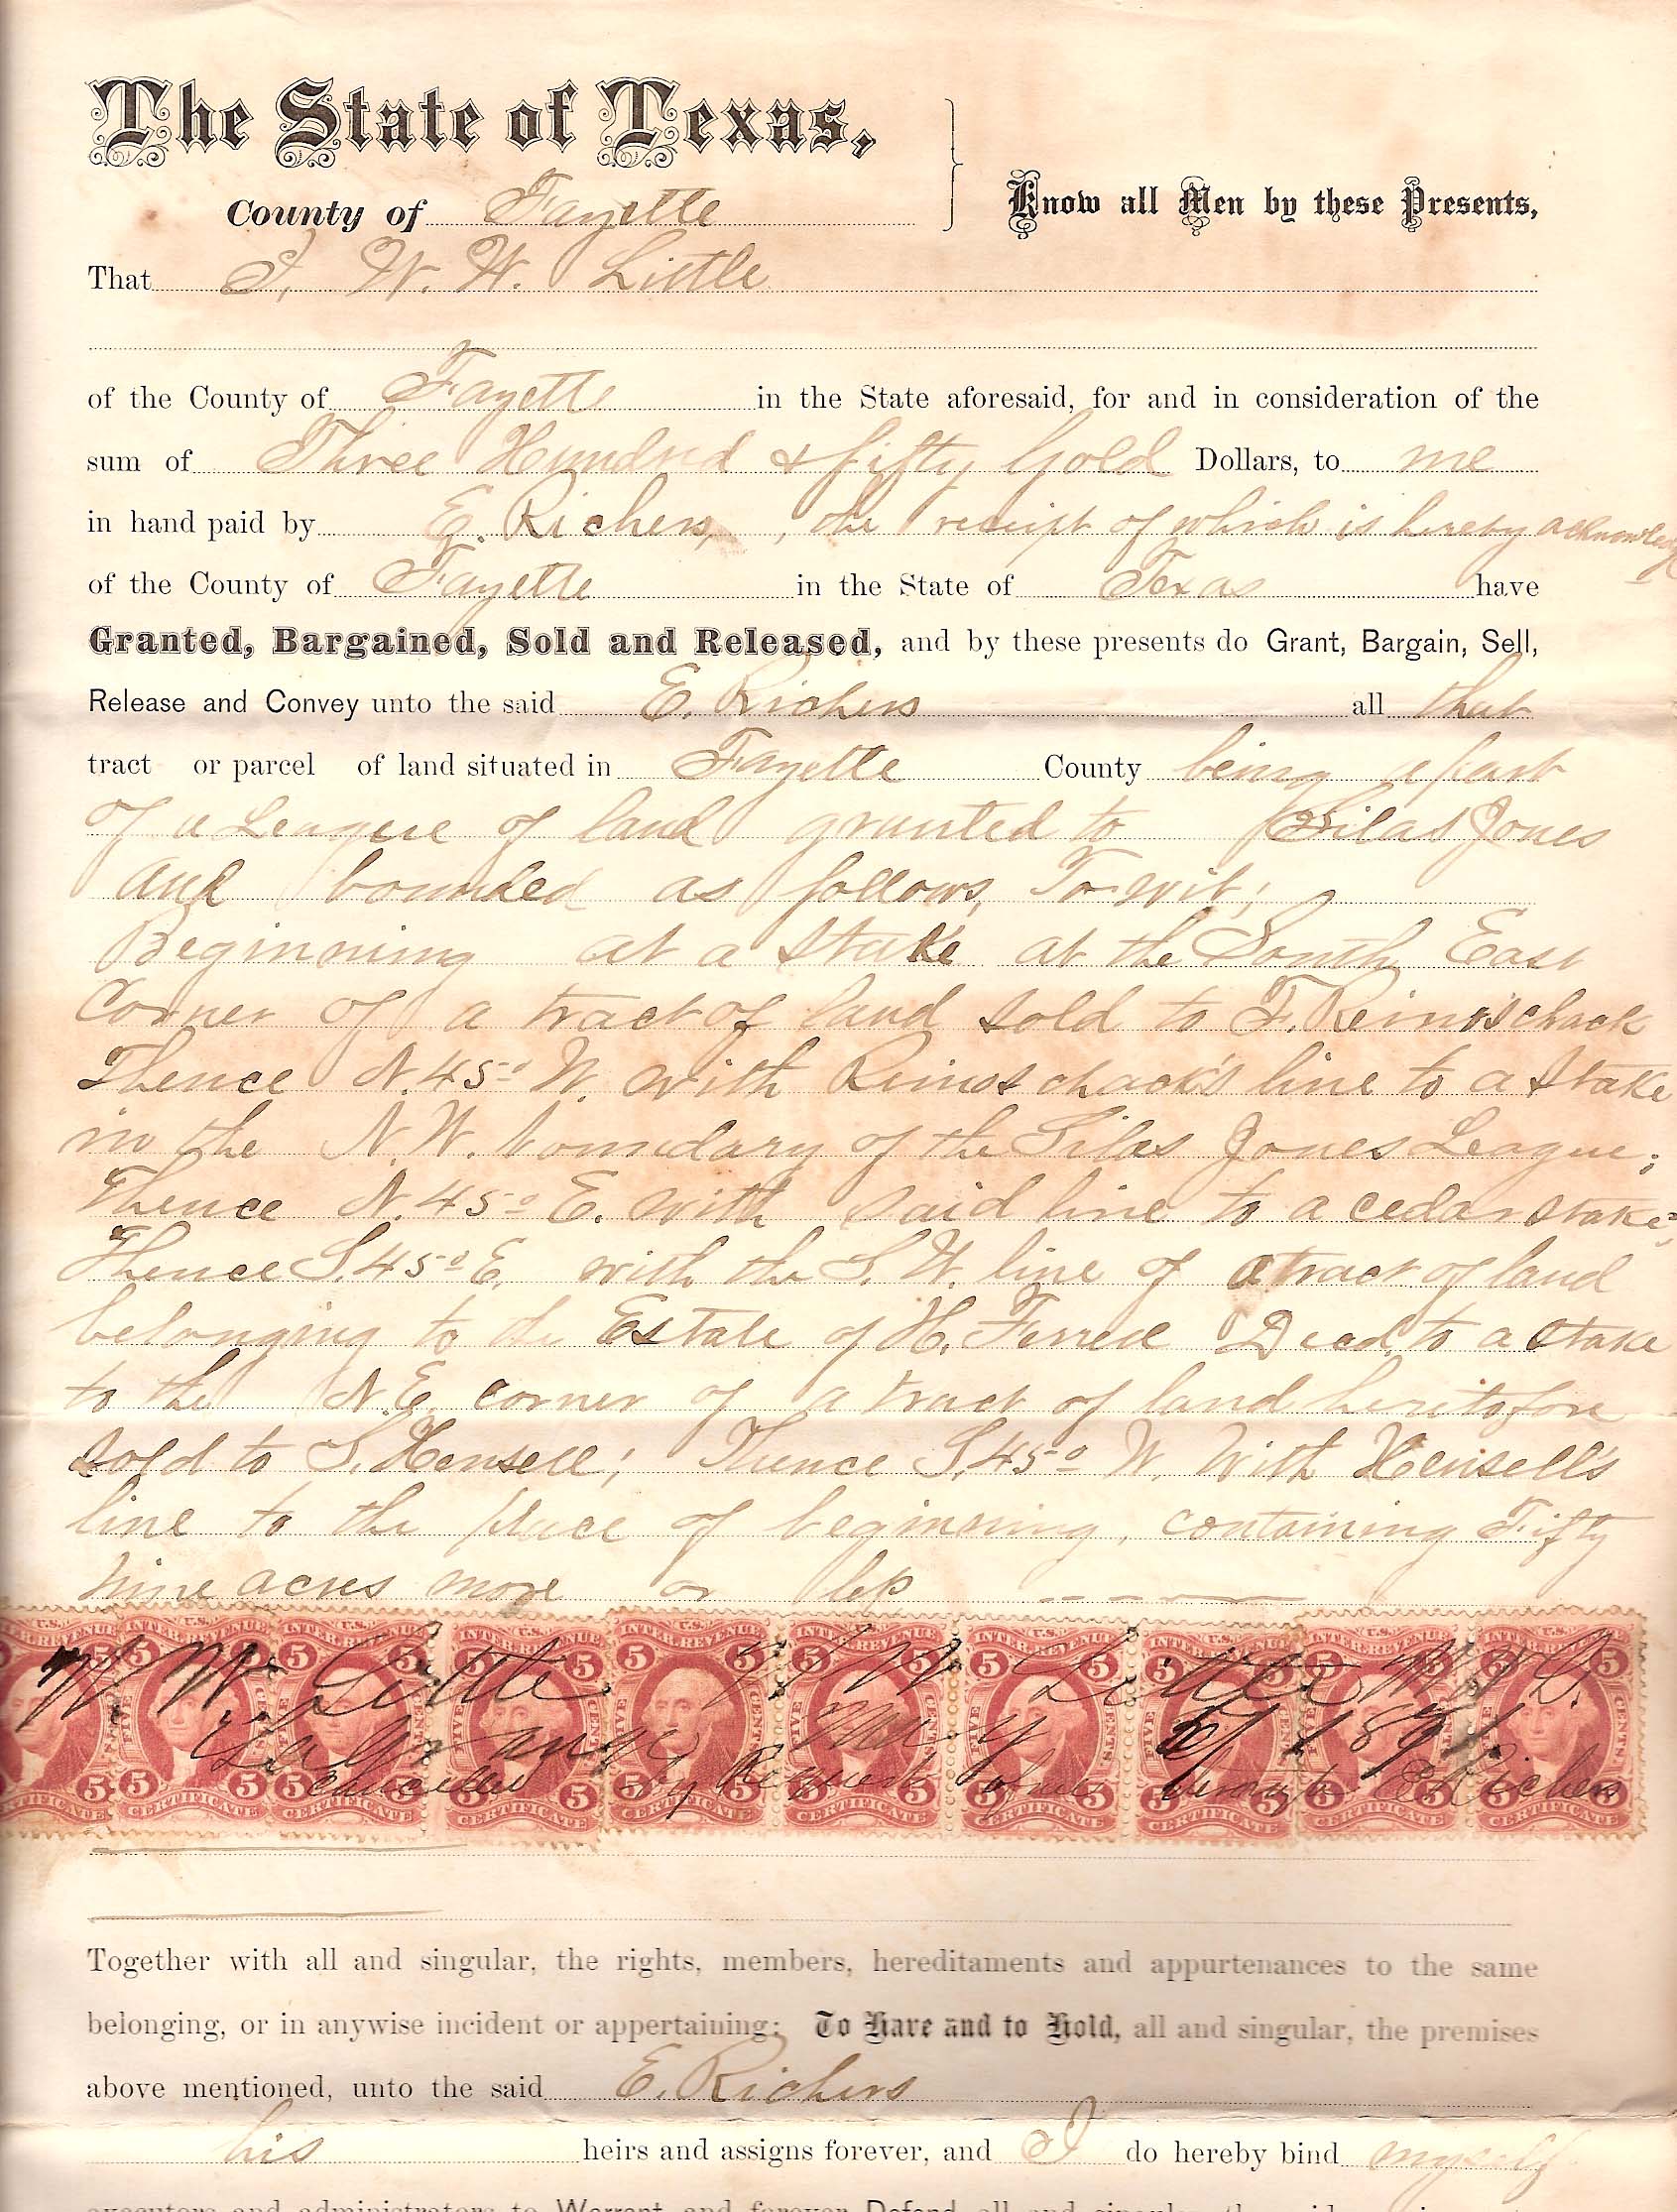 The State of Texas,
County of Fayette
Know all Men by these Presents,
That I, W. W. Little
of the County of Fayette in the State aforesaid, for and in consideration of the
sum of Three Hundred & fifty Gold Dollars, to me
in hand paid by E. Richers, the receipt of which is hereby acknowledg
of the County of Fayette in the State of Texas have
Granted, Bargained, Sold and Released, and by these presents do Grant, Bargain, Sell,
Release and Convey unto the said E. Richers all that
tract or parcel of land situated in Fayette County being a part
of a League of land granted to Silas Jones
and bounded as follows, To-wit;
Beginning at a Stake at the South East
Corner of a tract of land sold to F.
Thence N. 45° W. with line to a Stake
in the N.W. boundary of the Silas Jones League;
Thence N. 45° E. with said line to a cedar stake;
Thence S. 45° E. with the S. W. line of a tract of land
belonging to the Estate of H. Ferrell Decd. to a stake
to the N.E. corner of a tract of land heretofore
sold to S. Hensell; Thence S. 45° W. With Hensell's
line to the place of beginning, containing Fifty
nine acres more or less
U.S. INTER. REVENUE 5 FIVE CENTS CERTIFICATE
W W Little W W Little
La Grange May 1871
cancelled by Request of E Richers
Together with all and singular, the rights, members, hereditaments and appurtenances to the same
belonging, or in anywise incident or appertaining: To Have and to Hold, all and singular, the premises
above mentioned, unto the said E. Richers
his heirs and assigns forever, and I do hereby bind myself
executors and administrators to Warrant and forever Defend all and singular the